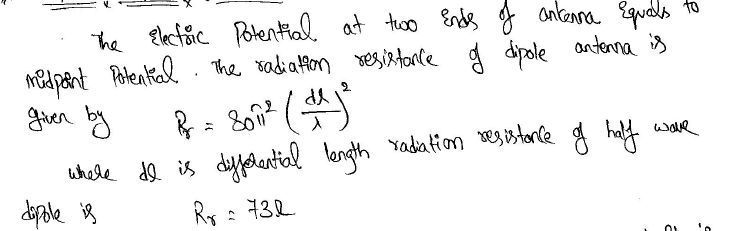 The Electric Potential at two Ends of antenna Equals to
midpoint Potential. The radiation resistance of dipole antenna is
given by Rr = 80π² (dl/λ)²
where dl is differential length radiation resistance of half wave
dipole is Rr = 73Ω